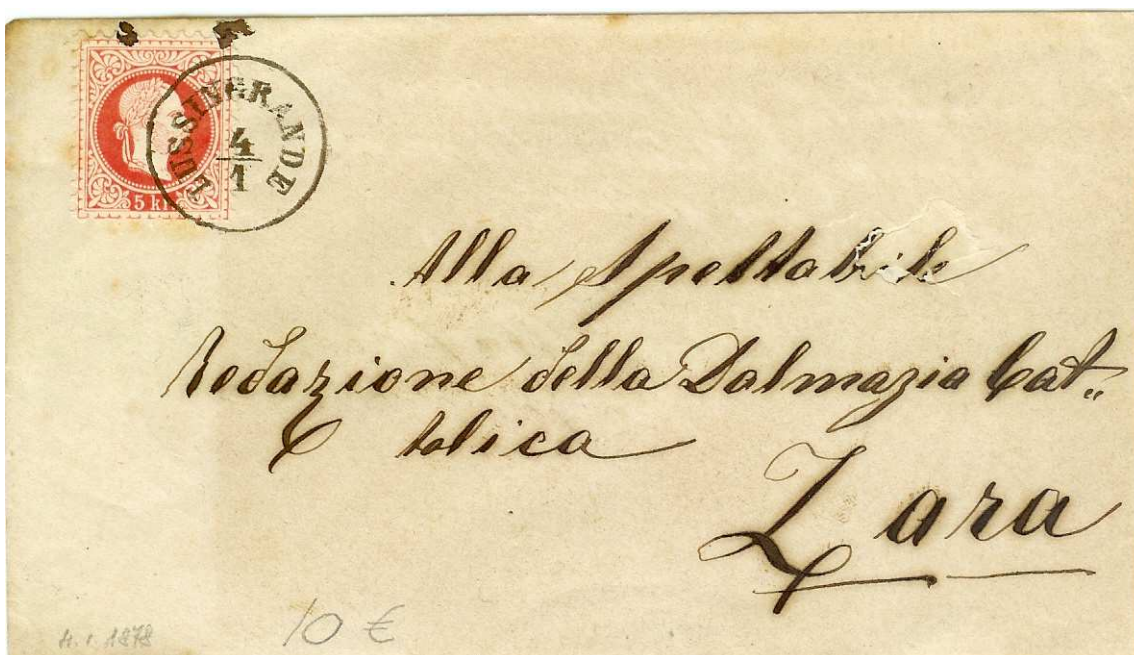 LUSSINGRANDE
4
1
5 kr
Alla Spettabile
Redazione della Dalmazia Cat„
tolica
Zara
4.1.1878
10 €